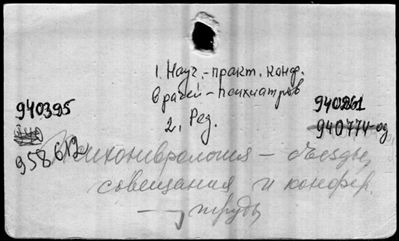 1. Науч.-практ. конф.
врачей-психиатров
2. Ред.
940395
958612
940261
940774-од
Психоневрология - съезды,
совещания и конфер.
— , труды